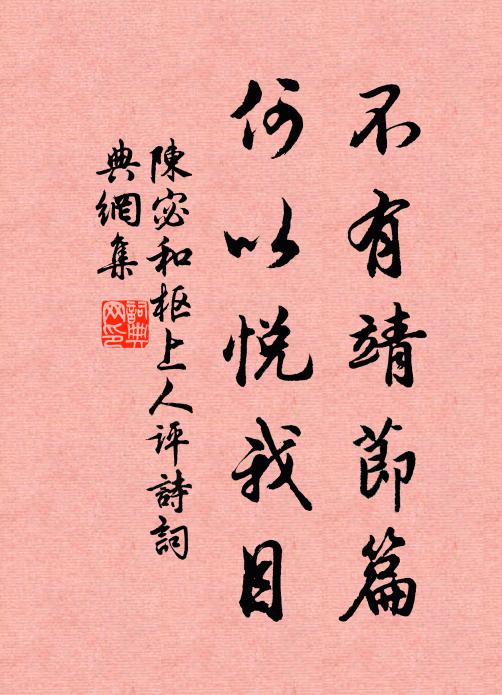 不有靖節篇
何以悅我目
陳宓和柩上人评詩詞
典網集
詞典
网印